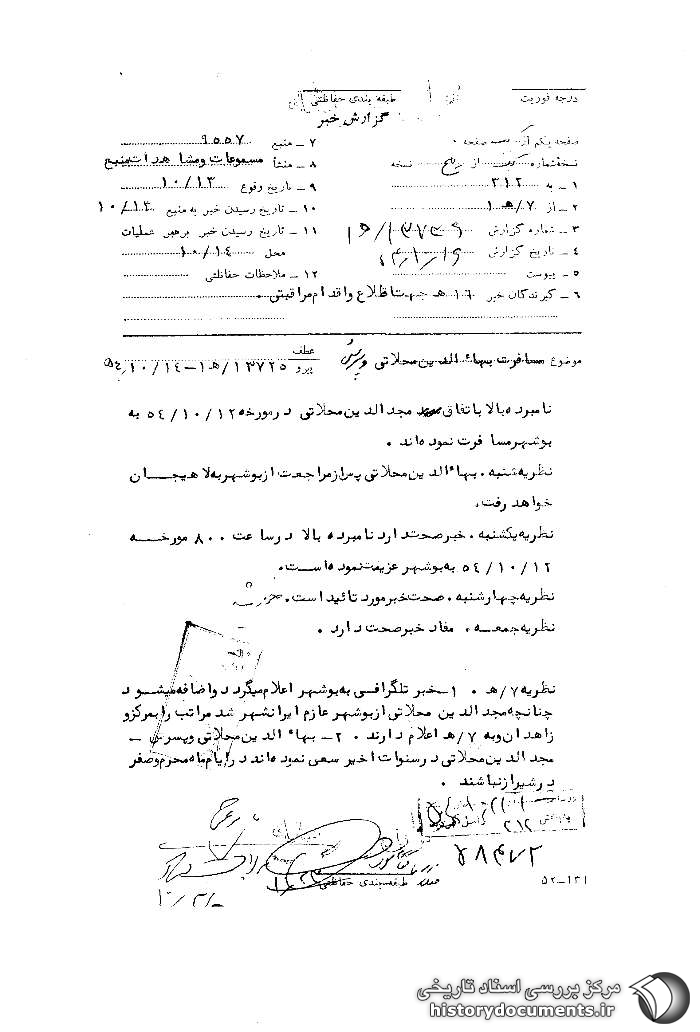 درجه فوریت
طبقه‌بندی حفاظتی
گزارش خبر
صفحه یکم از صفحه
نسخه شماره از پنج نسخه
۱ـ به ۳۱۲
۲ـ از ۷/هـ۱
۳ـ شماره گزارش
۴ـ تاریخ گزارش
۵ـ پیوست
۶ـ گیرندگان خبر ۱۶ هـ جهت اطلاع و اقدام مراقبتی .
۷ـ منبع ۹۵۵۷
۸ـ منشأ مسموعات و مشاهدات منبع
۹ـ تاریخ وقوع ۱۰/۱۳
۱۰ـ تاریخ رسیدن خبر به منبع ۱۰/۱۳
۱۱ـ تاریخ رسیدن خبر برهبر عملیات
محل ۱۰/۱۴
۱۲ـ ملاحظات حفاظتی
موضوع مسافرت بهاءالدین محلاتی و پسرش
عطف
پیرو ۱۳۷۲۵/هـ۱ـ۵۴/۱۰/۱۴
نامبرده بالا باتفاق مجدالدین محلاتی در مورخه ۵۴/۱۰/۱۲ به
بوشهر مسافرت نموده‌اند .
نظریه شنبه . بهاءالدین محلاتی پس از مراجعت از بوشهر به لاهیجان
خواهد رفت.
نظریه یکشنبه . خبر صحت دارد نامبرده بالا در ساعت ۸۰۰ مورخه
۵۴/۱۰/۱۲ به بوشهر عزیمت نموده است.
نظریه چهارشنبه . صحت خبر مورد تائید است.
نظریه جمعه . مفاد خبر صحت دارد .
نظریه ۷/هـ . ۱ـ خبر تلگرافی به بوشهر اعلام میگردد و اضافه میشود
چنانچه مجدالدین محلاتی از بوشهر عازم ایرانشهر شد مراتب را بمرکز و
زاهدان و به ۷/هـ اعلام دارند . ۲ـ بهاءالدین محلاتی و پسرش ـ
مجدالدین محلاتی در سنوات اخیر سعی نموده‌اند در ایام ماه محرم و صفر
در شیراز نباشند .
۳۱۲
طبقه‌بندی حفاظتی
۵۲ـ۱۳۱
مرکز بررسی اسناد تاریخی
historydocuments.ir